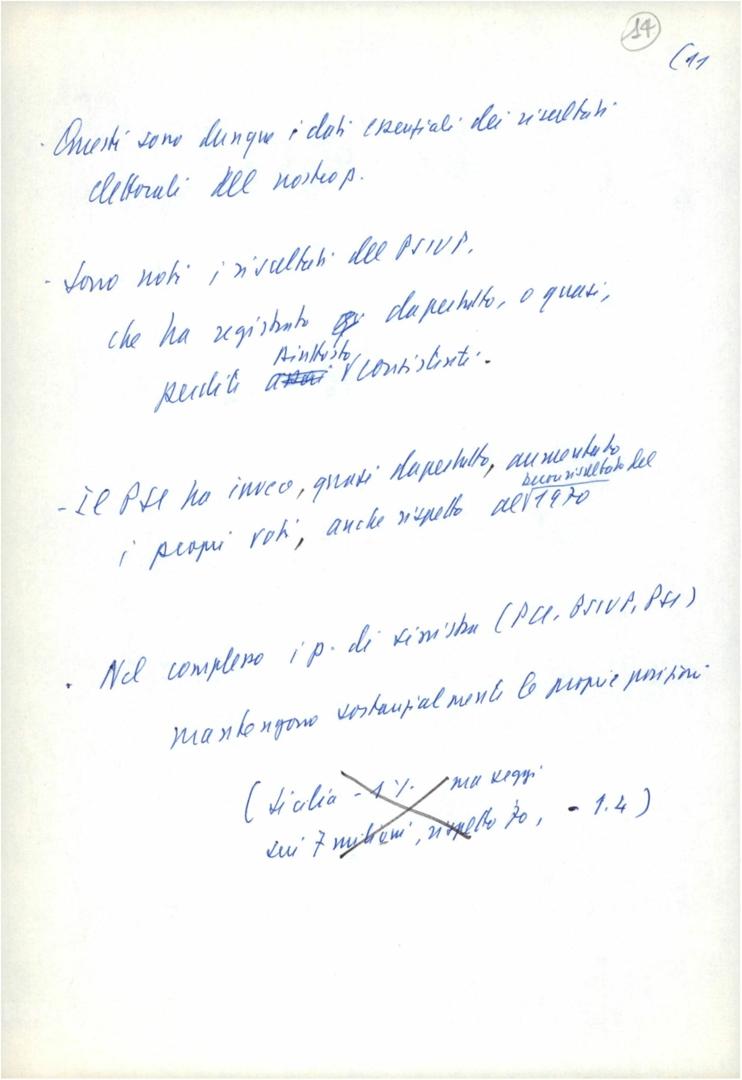 14
(11
- Questi sono dunque i dati essenziali dei risultati
elettorali del nostro p.
- Sono noti i risultati del PSIUP,
che ha registrato dapertutto, o quasi,
perdite assai piuttosto consistenti.
- Il PSI ha invece, quasi dapertutto, aumentato
i propri voti, anche rispetto al buon risultato del 1970
- Nel complesso i p. di sinistra (PCI, PSIUP, PSI)
mantengono sostanzialmente le proprie posizioni
(Sicilia - 1% ma seggi
sui 7 milioni, rispetto 70, - 1.4)